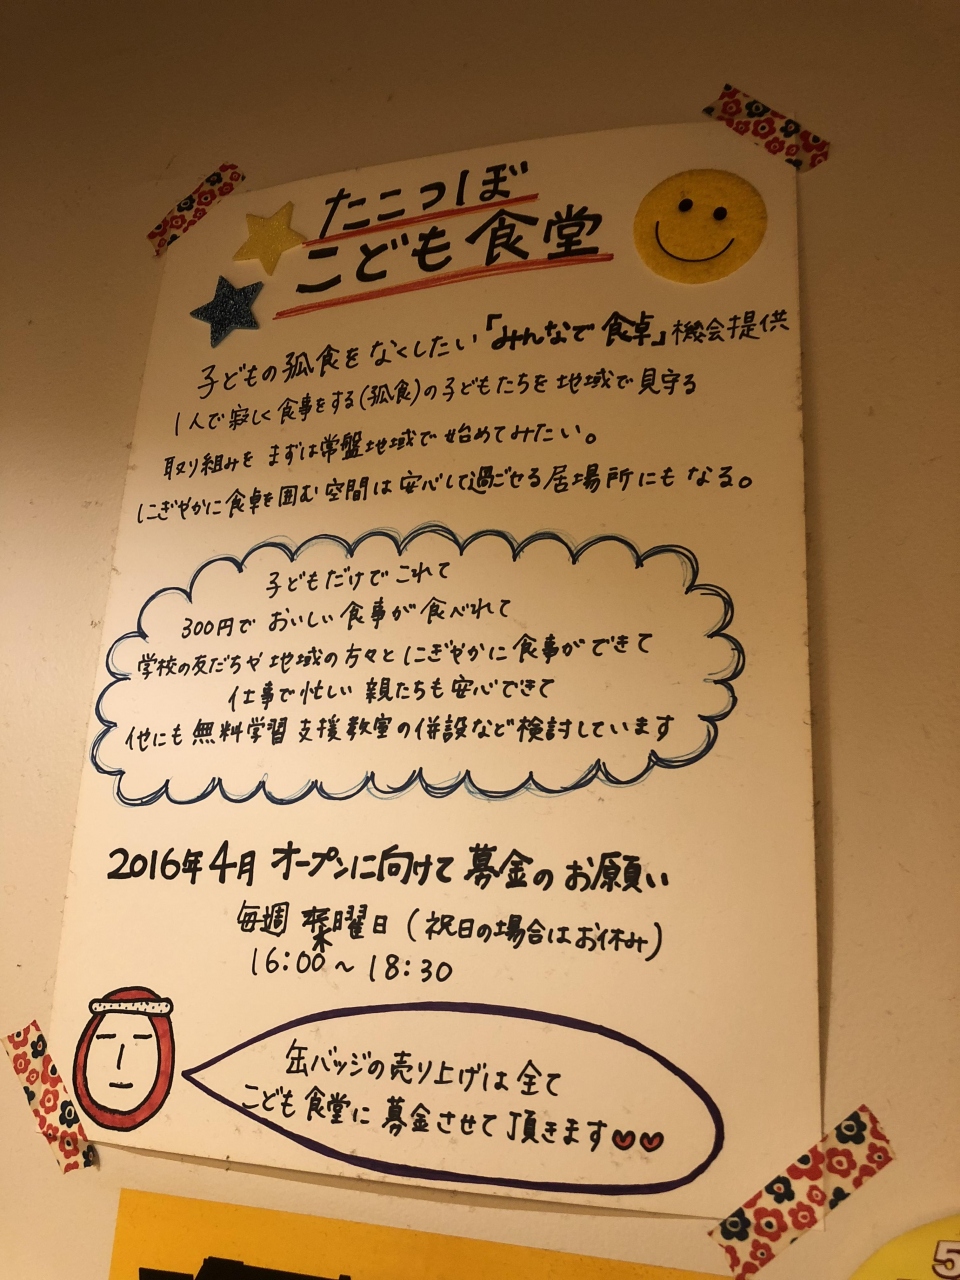 たこつぼ
こども食堂
子どもの孤食をなくしたい「みんなで食卓」機会提供
1人で寂しく食事をする(孤食)の子どもたちを地域で見守る
取り組みをまずは常盤地域で始めてみたい。
にぎやかに食卓を囲む空間は安心して過ごせる居場所にもなる。
子どもだけでこれて
300円でおいしい食事が食べれて
学校の友だちや地域の方々とにぎやかに食事ができて
仕事で忙しい親たちも安心できて
他にも無料学習支援教室の併設など検討しています
2016年4月オープンに向けて募金のお願い
毎週 木曜日(祝日の場合はお休み)
16:00~18:30
缶バッジの売り上げは全て
こども食堂に募金させて頂きます
5